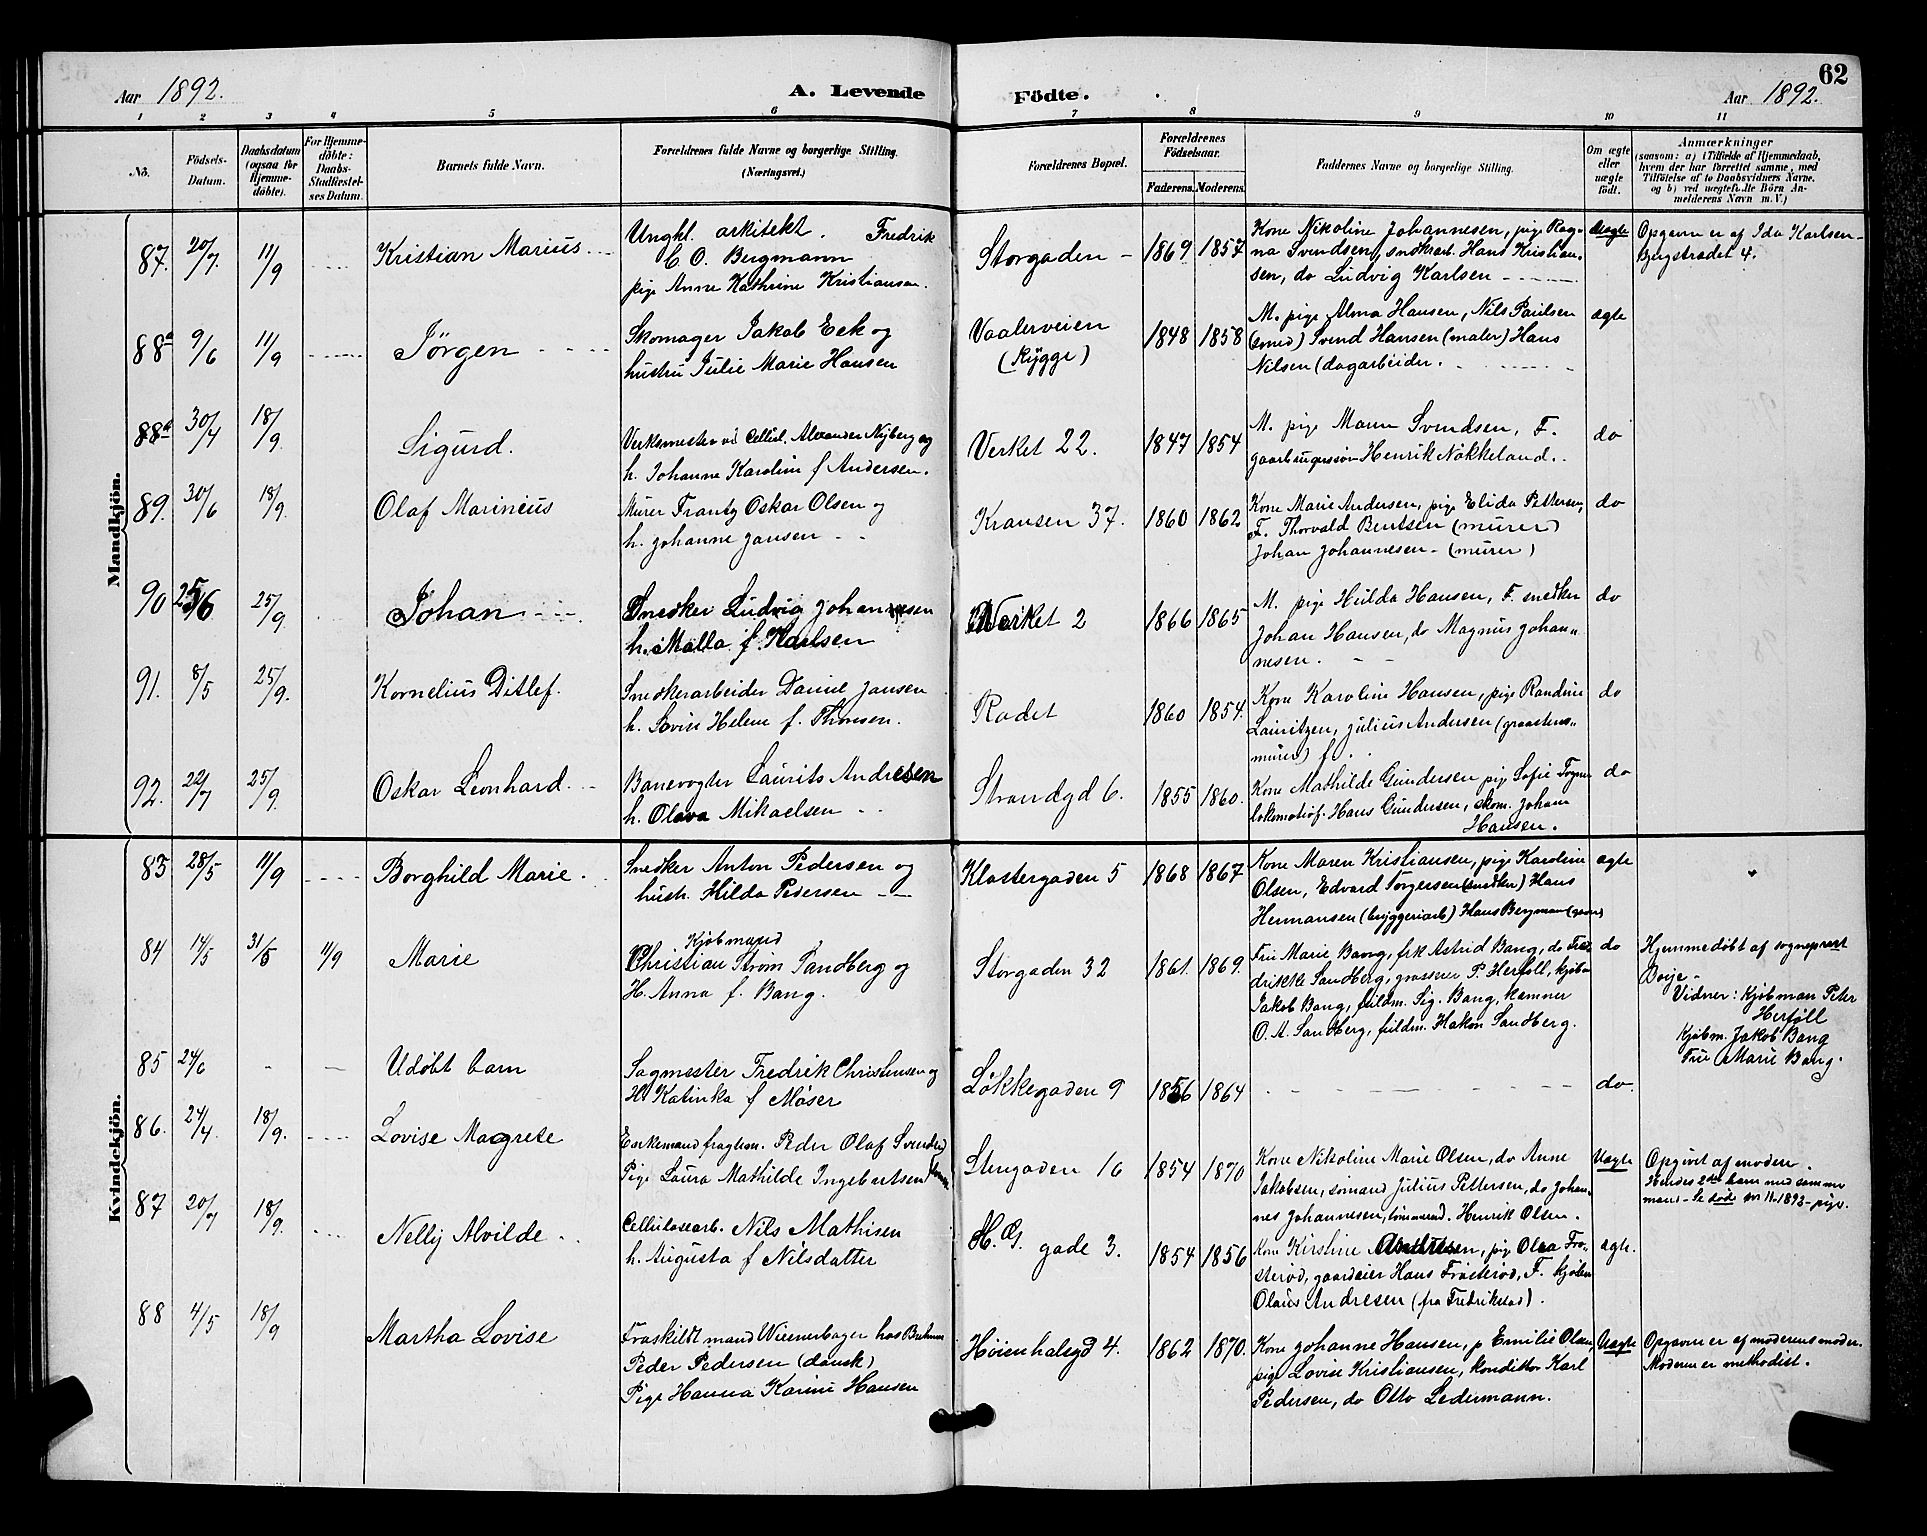 62
Aar 1892.
A. Levende Födte.
Aar 1892.
1 2 3 4 5 6 7 8 9 10 11
No.
Födsels-Datum.
Daabsdatum (ogsaa for Hjemme-döbte).
For Hjemme-döbte: Daabs-Stadfæstel-ses Datum.
Barnets fulde Navn.
Forældrenes fulde Navne og borgerlige Stilling. (Næringsvei.)
Forældrenes Bopæl.
Forældrenes Födselsaar.
Faderens. Moderens.
Faddernes Navne og borgerlige Stilling.
Om ægte eller uægte födt.
Anmærkninger
(saasom: a) i Tilfælde af Hjemmedaab,
hvem der har forrettet samme, med
Tilföielse af to Daabsvidners Navne.
og b) ved uægtefödte Börn An-
melderens Navn m. V.)
Mandkjön.
87. 20/7. 11/9 Kristian Marius
Ungkl. arkitekt. Fredrik
C. O. Bergmann
pige Anne Kathrine Kristiansen.
Storgaden 1869 1857
Kone Nikoline Johannesen, pige Rag-
na Svendsen, snedkerarb. Hans Kristian-
sen, do Ludvig Karlsen
Uægte
Opgaven er af Ida Karlsen
Bergstrædet 4.
88a 9/6 11/9 Jörgen
Skomager Jakob Eek og
hustru Julie Marie Hansen
Vaalerveien
(Rygge)
1848 1858
M. pige Alma Hansen, Nils Paulsen
(smed) Svend Hansen (maler) Hans
Nilsen (dagarbeider.
ægte
88b 30/4 18/9. Sigurd.
Verksmester ved Cellul. Alexander Nyberg og
h. Johanne Karoline f Andersen.
Verket 22. 1847 1854
M. pige Maren Svendsen, F.
Henrik Nökkeland.
do
89. 30/6 18/9. Olaf Marinius
Murer Frantz Oskar Olsen og
h. Johanne Jansen
Kransen 37. 1860 1862
Kone Marie Andersen, pige Elida Pettersen,
F. Thorvald Bentsen (murer)
Johan Johannesen - (murer)
do
90 25/6 25/9 Johan
Snedker Ludvig Johannesen
h. Malla f. Karlsen
Verket 2 1866 1865
M. pige Hulda Hansen, F. snedker
Johan Hansen, do Magnus Johan-
nesen.
do
91. 8/5 25/9. Kornelius Ditlef.
Snedkerarbeider Daniel Jansen
h. Lovise Helene f. Thomsen.
Rødet 1860 1854.
Kone Karoline Hansen, pige Randine
Lauritzen, Julius Andersen (graastens-
murer) f.
do
92. 22/7 25/9. Oskar Leonhard.
Banevogter Laurits Andresen
h. Olava Mikaelsen
Strandgd 6. 1855 1860.
Kone Mathilde Gundersen pige Sofie
lokomotivf. Hans Gundersen, skom. Johan
Hansen.
do
Kvindekjön.
83 28/5 11/9 Borghild Marie.
Snedker Anton Pedersen og
hustr. Hilda Pedersen
Klostergaden 5 1868 1867
Kone Maren Kristiansen, pige Karoline
Olsen, Edvard Torgersen (snedker) Hans
Hermansen (bryggeriarb) Hans Bergman
ægte
84 14/5 31/5 11/9 Marie
Kjöbmand
Christian Ström Sandberg og
H. Anna f. Bang.
Storgaden 32 1861. 1869.
Fru Marie Bang, frk Astrid Bang, do Fre-
drikke Sandberg, grosserer P. Herföll, kjöbm
Jakob Bang, fuldm. Sig. Bang, kæmner
O. A. Sandberg, fuldm. Hakon Sandberg.
do
Hjemmedöbt af sogneprest
Boije-
Vidner: Kjöbman Peter
Herföll
Kjöbm. Jakob Bang
Frue Marie Bang.
85 24/6 Udöbt barn
Sagmester Fredrik Christensen og
H. Katinka f Möser
Lökkegaden 9 1856 1864
do.
86. 24/4 18/9. Lovise Magrete
Enkemand fragtem. Peder Olaf Svendsen
Pige Laura Mathilde Ingebertsen
Stengaden 16 1854 1870
Kone Nikoline Marie Olsen, do Anne
Jakobsen, sömand Julius Pettersen, do Johan-
nes Johannesen, tömmermd. Henrik Olsen.
Uægte
Opgivet af modern.
Hendes 2det barn med samme
mand - Se döde nr 11-1892 - pige.
87 20/7 18/9. Nelly Alvilde
Cellulosearb. Nils Mathisen
h. Augusta f Nilsdatter
H. G. gade 3. 1854 1856
Kone Kirstine Andresen, pige Olea Frö-
steröd, gaardeier Hans Frösteröd, F. kjöbm
Olaus Andresen (fra Fredrikstad).
ægte.
88 4/5 18/9 Martha Lovise
Fraskildt mand Wienerbager hos Brehmer
Peder Pedersen (dansk)
Pige Hanna Karine Hansen
Höienhalsgd 4. 1862 1870.
Kone Johanne Hansen, p Emilie Olsen,
pige Lovise Kristiansen, konditor Karl
Pedersen, do Otto Ledermann.
Uægte
Opgaven er af moderens moder.
Moderen er methodist.